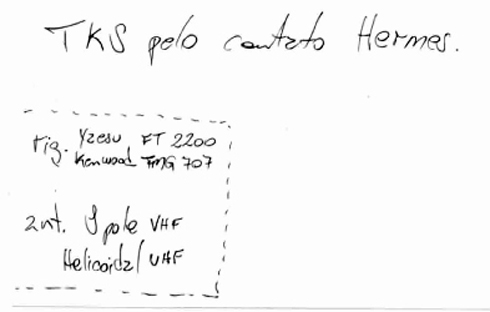 TKS pelo contato Hermes.
rig. Yaesu FT 2200
Kenwood TMG 707
ant. J pole VHF
Helicoidal UHF